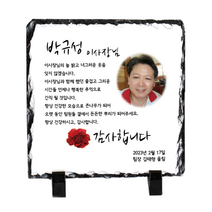 박규성 이사장님
이사장님의 늘 밝고 너그러운 웃음
잊지 않겠습니다.
이사장님과 함께 했던 즐겁고 그리운
시간들 언제나 행복한 추억으로
간직 될 것입니다.
항상 건강한 모습으로 존나우가 되어
오랫 동안 팀원들 곁에서 든든한 뿌리가 되어주세요.
항상 건강하시고, 감사합니다.
감사합니다
2023년 2월 17일
팀장 김태형 올림